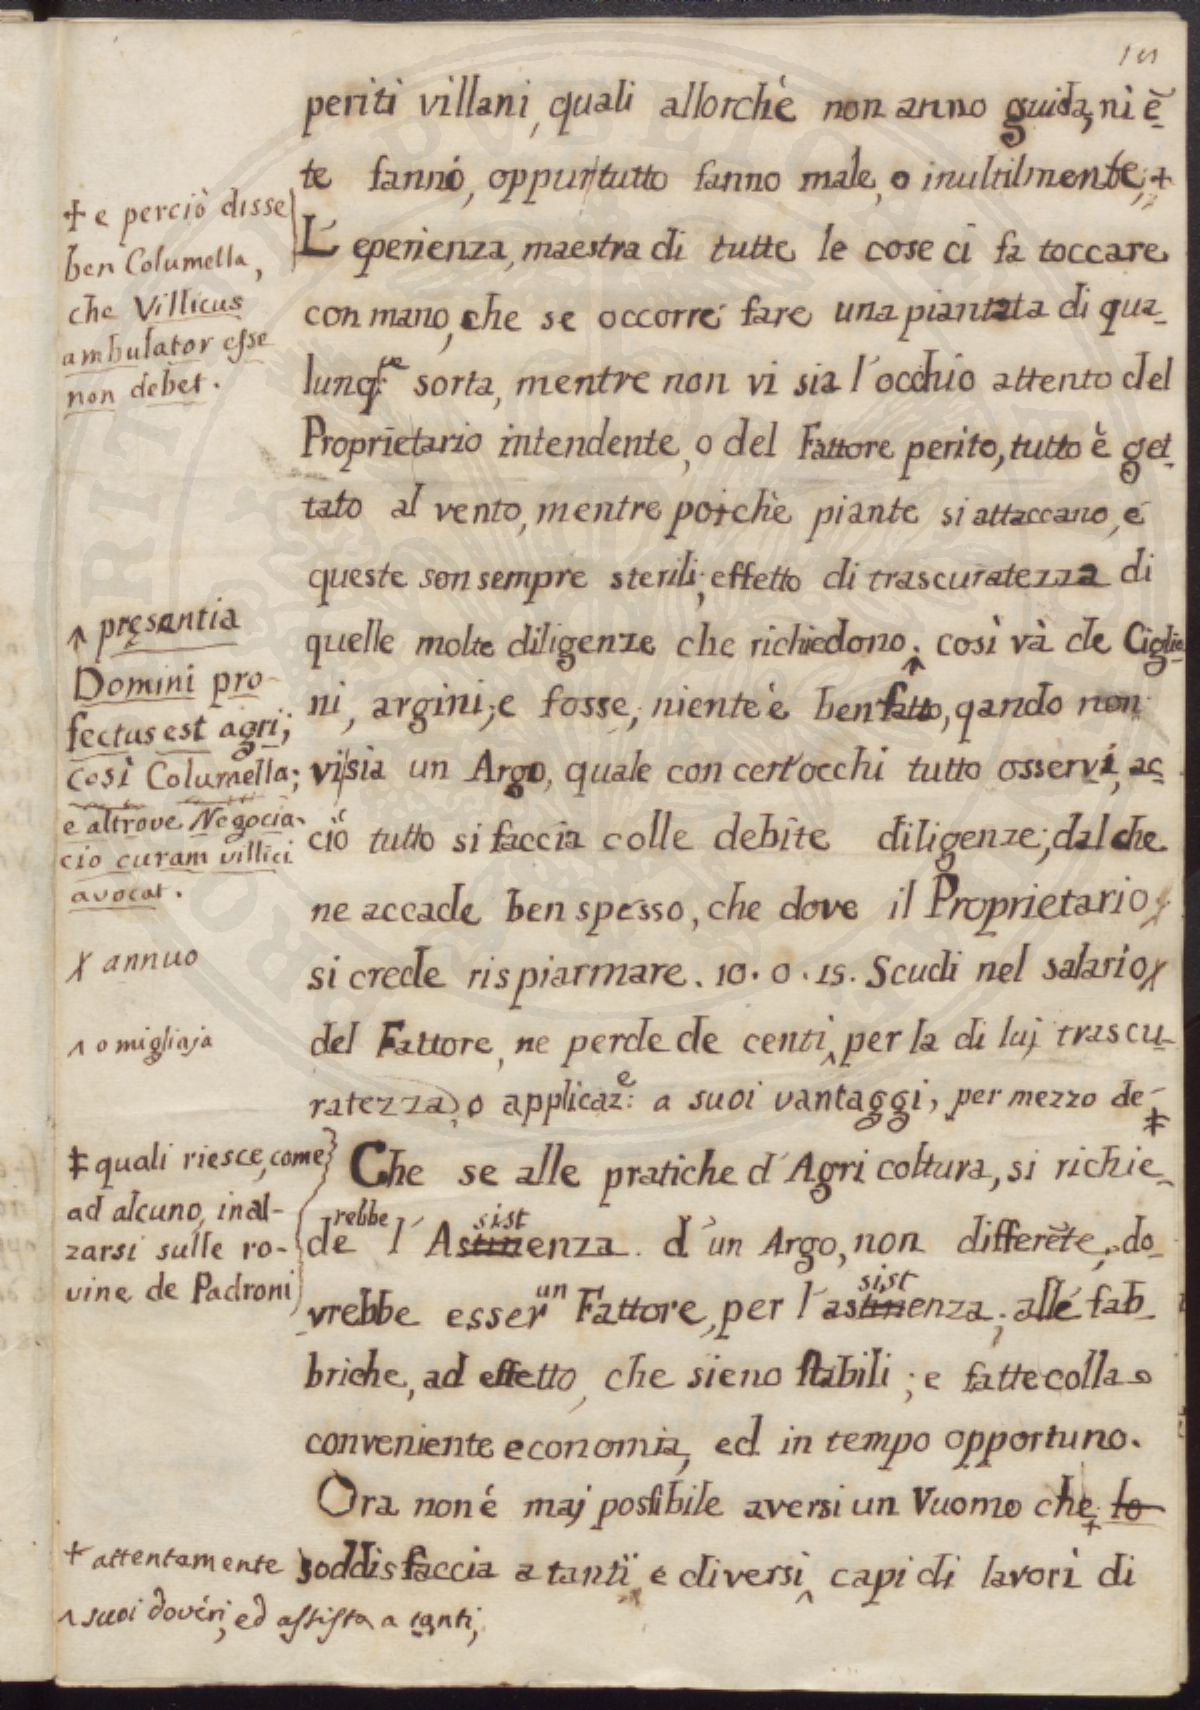 periti villani, quali allorchè non anno guida, niē-
te fanno, oppur tutto fanno male, o inultilmente; +
L'eperienza, maestra di tutte le cose ci fa toccare
con mano, che se occorre fare una piantata di qua-
lunq:ue sorta, mentre non vi sia l'occhio attento del
Proprietario intendente, o del Fattore perito, tutto è get-
tato al vento, mentre poichè piante si attaccano, e
queste son sempre sterili; effetto di trascuratezza di
quelle molte diligenze che richiedono. così và de Ciglio-
ni, argini, e fosse, niente è ben fatto, qando non
vi sia un Argo, quale con cert'occhi tutto osservi, ac-
ciò tutto si faccia colle debite diligenze; dal che
ne accade ben spesso, che dove il Proprietario
si crede rispiarmare. 10. o. 15. Scudi nel salario X
del Fattore, ne perde de centi ^ per la di luj trascu-
ratezza, o applicaz:e a suoi vantaggi, per mezzo de ‡
Che se alle pratiche d'Agricoltura, si richie-
derebbe l'Assistenza d'un Argo, non differēte, do-
vrebbe esser un Fattore, per l'assistenza, alle fab-
briche, ad effetto, che sieno stabili; e fatte colla
conveniente economia, ed in tempo opportuno.
Ora non é maj possibile aversi un Vuomo che + lo
soddisfaccia a tanti e diversi ^ capi di lavori di
+ e perciò disse
ben Columella,
che Villicus
ambulator esse
non debet.
presentia
Domini pro-
fectus est agri;
così Columella;
e altrove Negocia-
cio curam villici
avocat.
X annuo
^ o migliaja
‡ quali riesce, come
ad alcuno, inal-
zarsi sulle ro-
vine de Padroni
+ attentamente
^ suoi dovéri, ed assista a tanti,